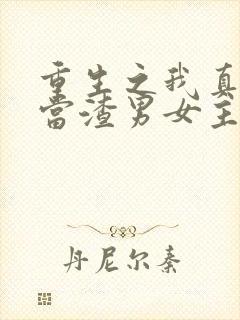 重生之我真
當渣男女主
丹尼尔秦